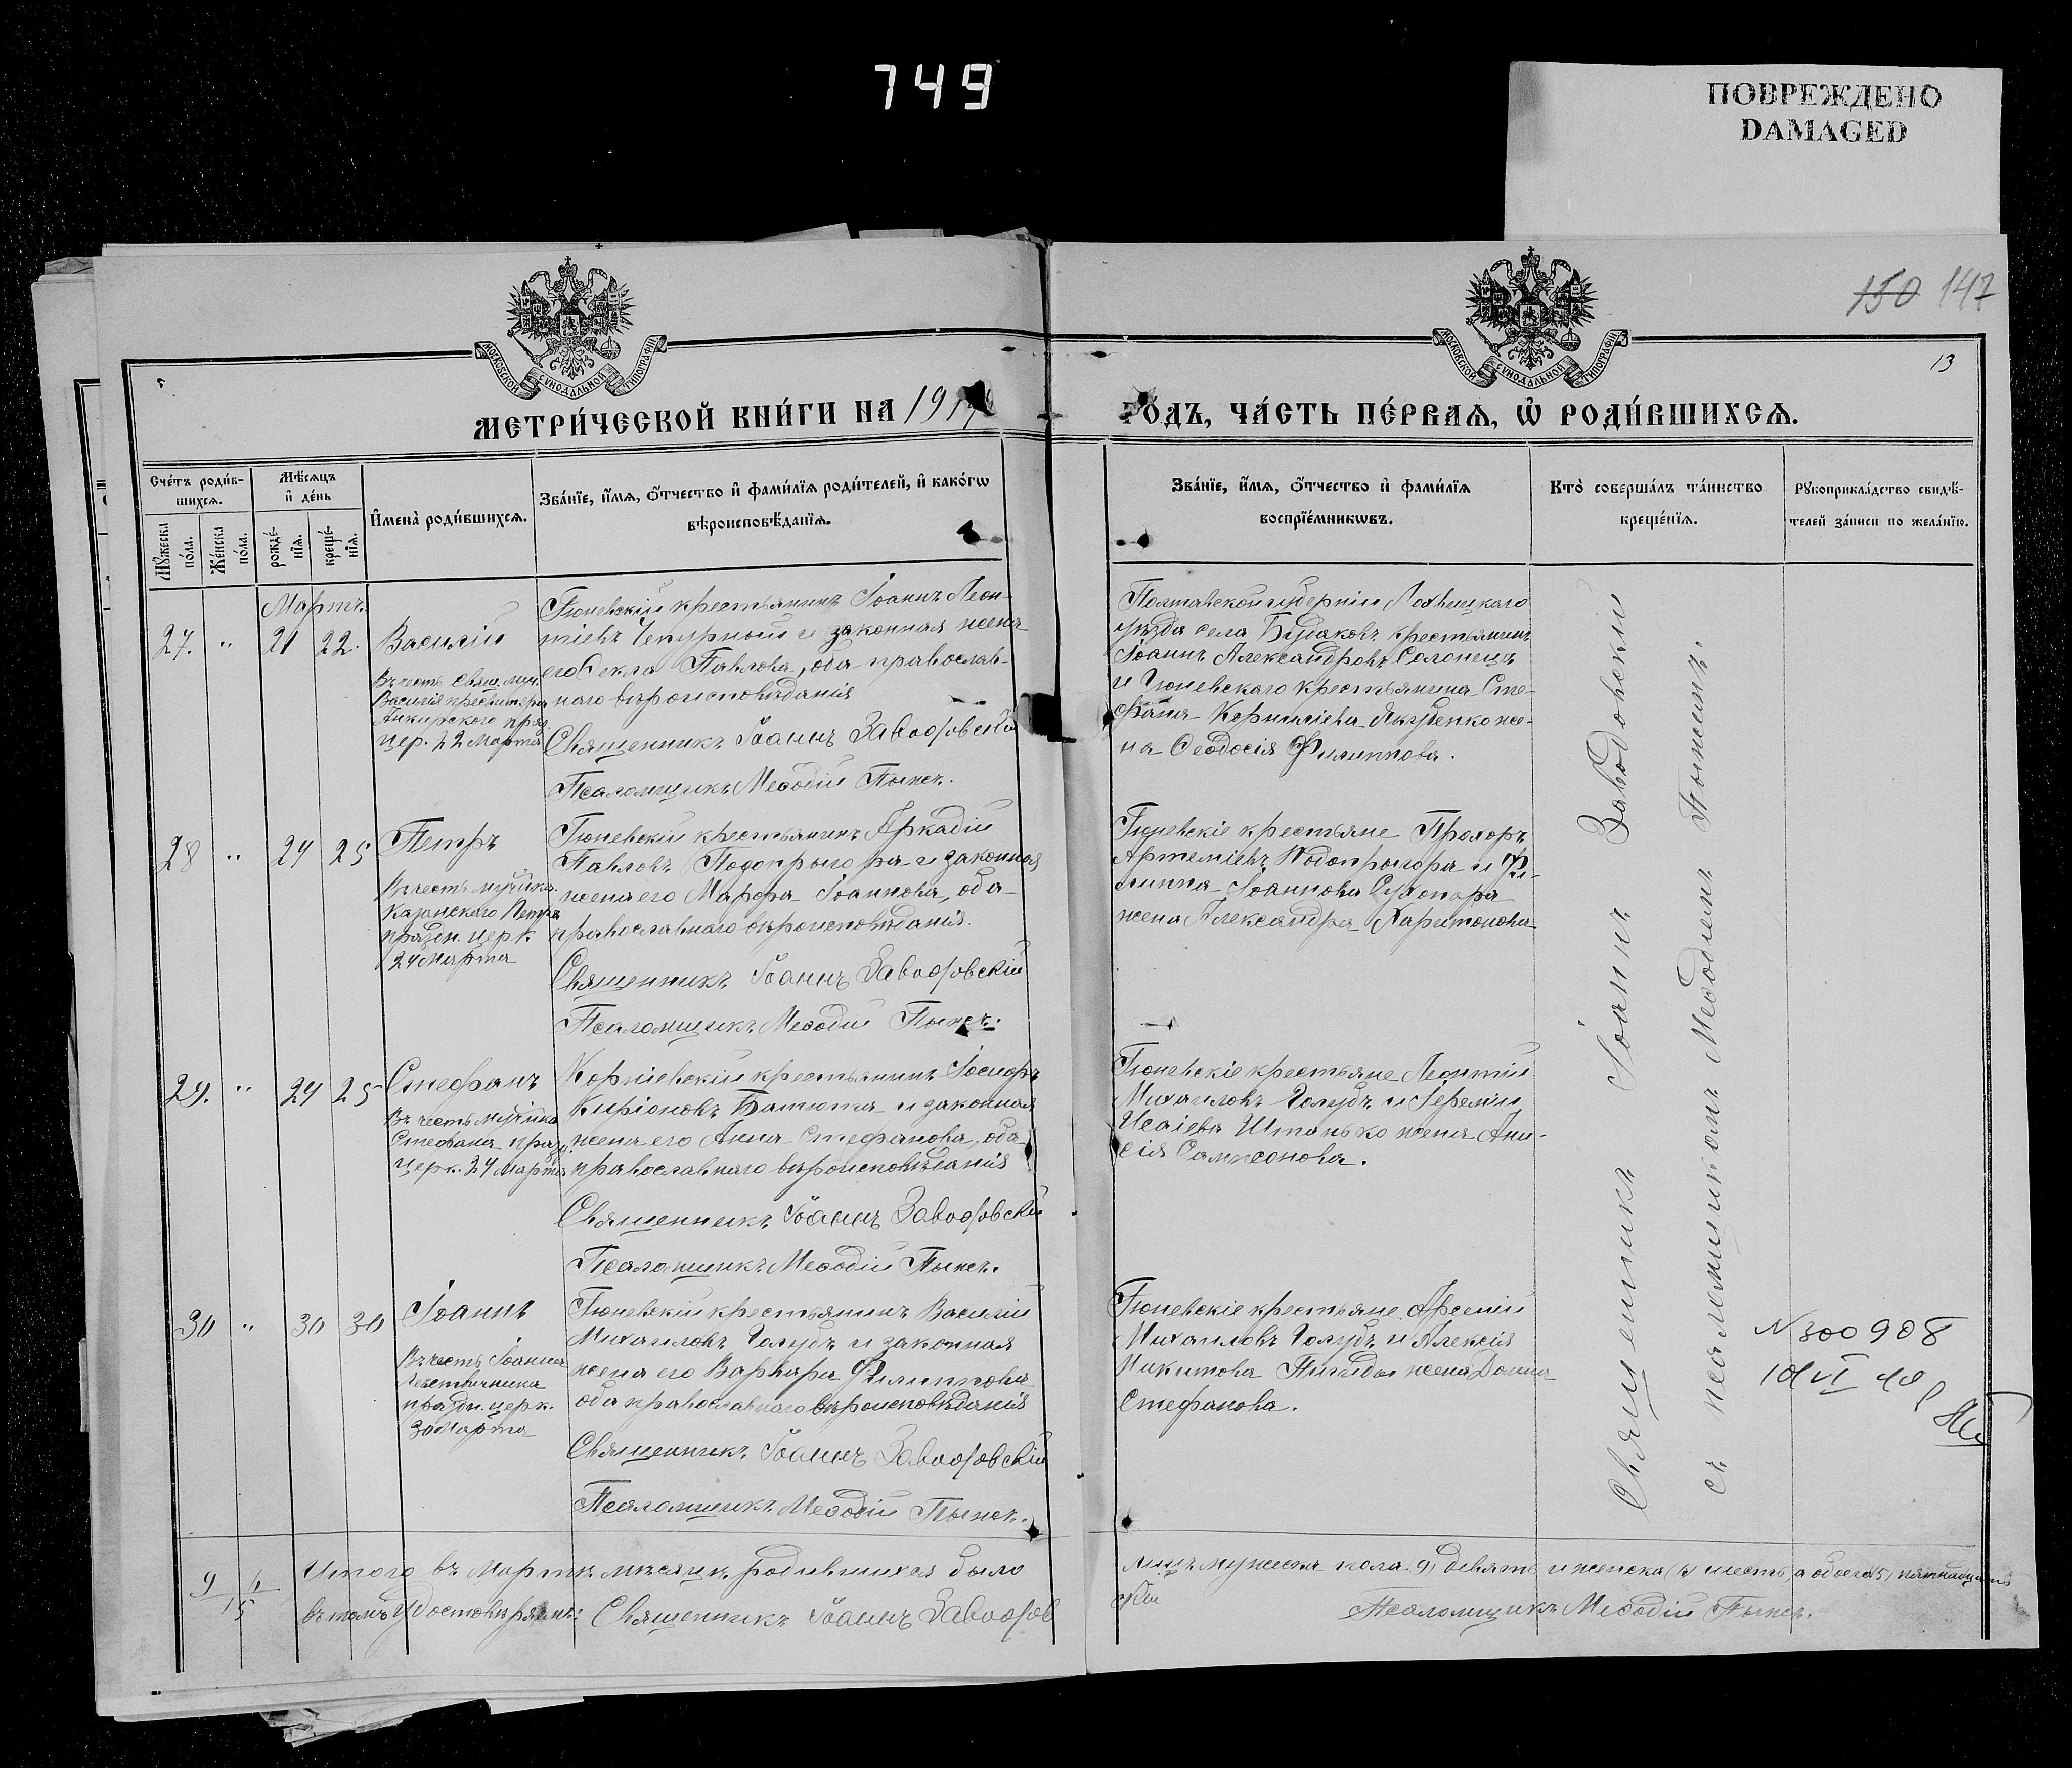 749
ПОВРЕЖДЕНО
DAMAGED
150 147
13
МОСКОВСКОЙ СѴНОДАЛЬНОЙ ТИПОГРАФІИ
МОСКОВСКОЙ СѴНОДАЛЬНОЙ ТИПОГРАФІИ
МЕТРИ́ЧЕСКОЙ КНИ́ГИ НА 191
ГО́ДЪ, ЧА́СТЬ ПЕ́РВАЯ, Ѡ҆ РОДИ́ВШИХСЯ.
Сче́тъ роди́в-
шихся.
Мѹжеска по́ла.
Же́нска по́ла.
Мѣ́сяцъ
и҆ де́нь
рожде́-
нїя.
креще́-
нїя.
И҆мена̀ роди́вшихся.
Зва́нїе, и҆́мя, ѻ҆́тчество и҆ фами́лїя роди́телей, и҆ како́гѡ
вѣроисповѣ́данїя.
Зва́нїе, и҆́мя, ѻ҆́тчество и҆ фами́лїя
воспрїе́мникѡвъ.
Кто̀ соверша́лъ та́инство
креще́нїя.
Рѹкоприкла́дство свидѣ́-
телей за́писи по жела́нїю.
Мартъ.
27. " 21 22. Василій
Въ честь Свящ. муч.
Василія пресвитера
Анкирского праз.
цер. 22 Марта
Гюневскій крестьянинъ Іоаннъ Леон-
тіевъ Чепурной и законная жена
его Ѳекла Павлова, оба православ-
наго вѣроисповѣданія
Священникъ Іоаннъ Заводовскій
Псаломщикъ Меѳодій Пынзъ.
Полтавской губерніи Лохвицкаго
уѣзда села Бубаковъ крестьянинъ
Іоаннъ Александровъ Солонецъ
и Гюневскаго крестьянина Сте-
фана Корниліева Якубенко же-
на Ѳеодосія Филиппова.
28 " 24 25 Петръ
Въ честь мученика
Казанскаго Петра
праздн. церк.
24 Марта
Гюневскій крестьянинъ Аркадій
Павловъ Подопрыгора и законная
жена его Марфа Іоаннова, оба
православнаго вѣроисповѣданія.
Священникъ Іоаннъ Заводовскій
Псаломщикъ Меѳодій
Гюневскіе крестьяне Прохоръ
Артеміевъ Подопрыгора и Фи-
липпа Іоаннова
жена Александра Харитонова
29. " 24 25 Стефанъ
Въ честь мученика
Стефана празд.
церк. 24 Марта
Корніевскій крестьянинъ Іосифъ
Киріоновъ Батюта и законная
жена его Анна Стефанова, оба
православнаго вѣроисповѣданія
Священникъ Іоаннъ Заводовскій
Псаломщикъ Меѳодій
Гюневскіе крестьяне Леонтій
Михаиловъ Голубъ и Іереміи
Исаіева Штанько жена Ани-
сія Сампсонова.
30 " 30 30 Іоаннъ
Въ честь Іоанна
Лѣствичника
праздн. церк.
30 Марта
Гюневскій крестьянинъ Василій
Михаиловъ Голубъ и законная
жена его Варвара Филиппова
оба православнаго вѣроисповѣданія
Священникъ Іоаннъ Заводовскій
Псаломщикъ Меѳодій
Гюневскіе крестьяне Арсеній
Михаиловъ Голубъ и Алексія
Никитова жена Домна
Стефанова.
Священникъ Іоаннъ Заводовскій
съ псаломщикомъ Меѳодіемъ
N 300908
9 6
15
Итого въ Мартѣ мѣсяцѣ родившихся было
лицъ мужеска пола (9) девять и женска (6) шесть, а обоего (15) пятнадцать
въ томъ удостовѣряемъ: Священникъ Іоаннъ Заводов
скій
Псаломщикъ Меѳодій